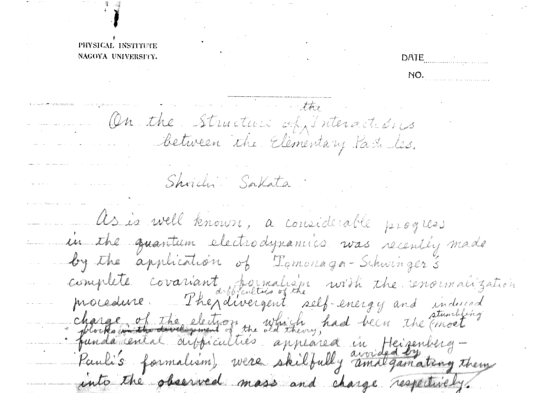 PHYSICAL INSTITUTE
NAGOYA UNIVERSITY.
DATE
NO.
the
On the Structure of Interactions
between the Elementary Particles.
Shoichi Sakata
As is well known, a considerable progress
in the quantum electrodynamics was recently made
by the application of Tomonaga-Schwinger's
complete covariant formalism with the renormalization
difficulties of the
procedure. The divergent self-energy and induced
charge of the electron which had been the most
stumbling
blocks in the development of the old theory,
fundamental difficulties appeared in Heisenberg-
Pauli's formalism, were skilfully amalgamating them
avoided by
into the observed mass and charge respectively.